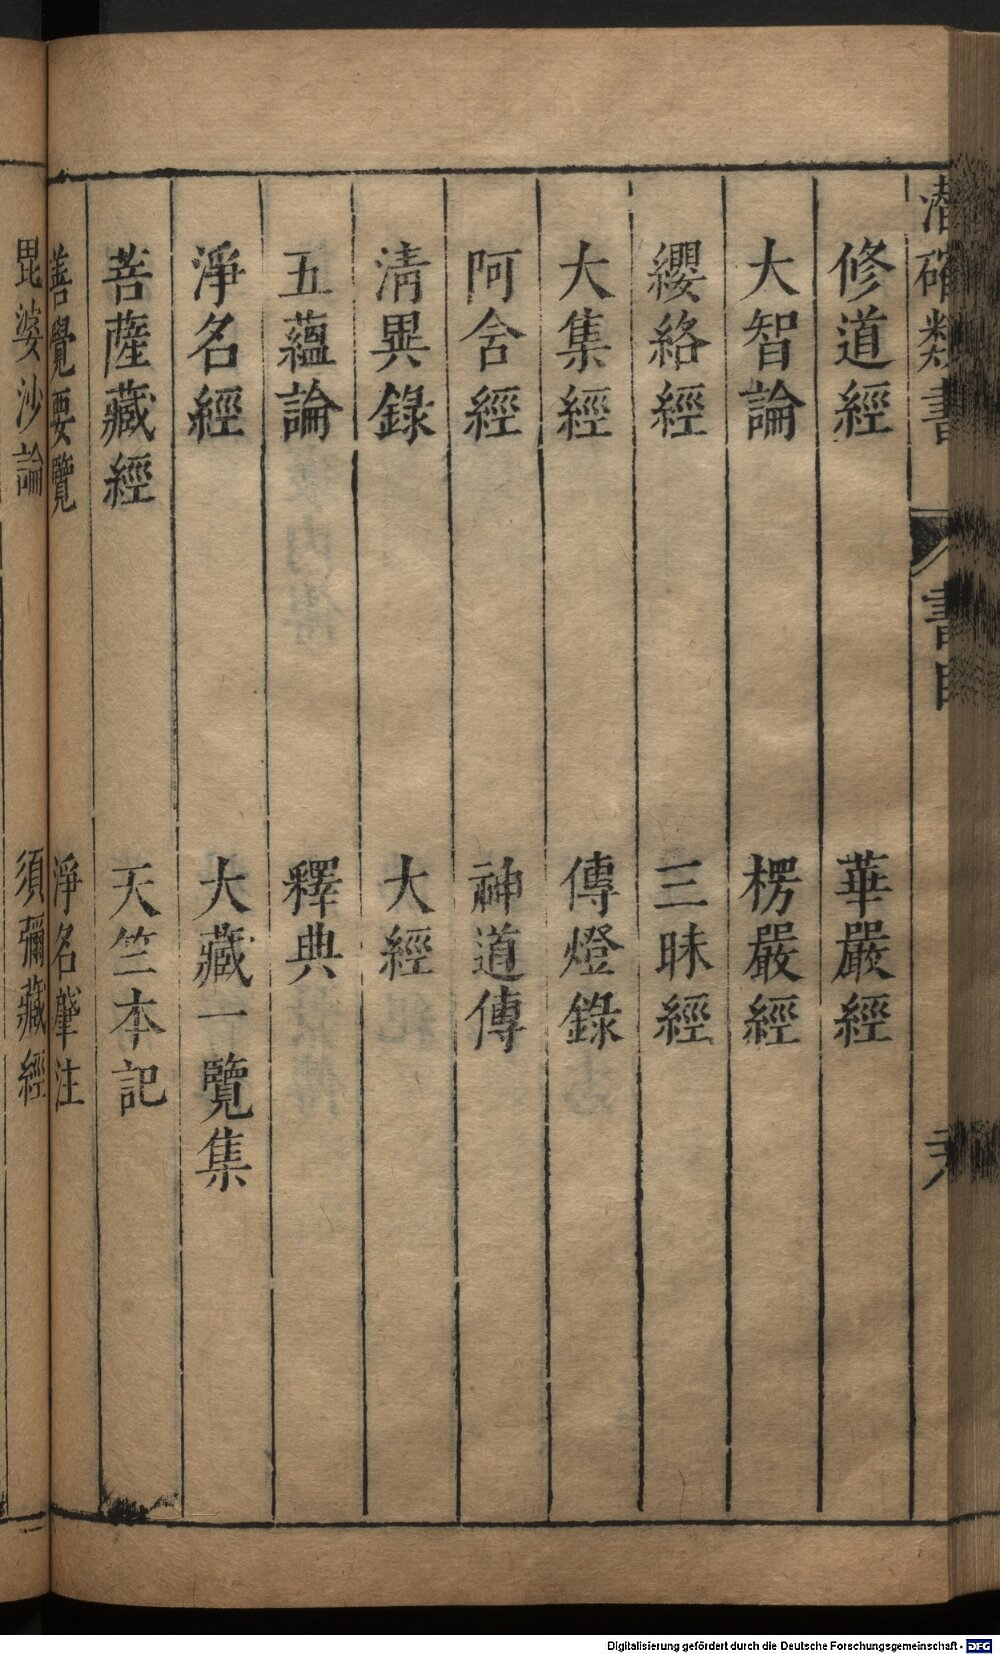 潛確類書 書目
修道經 華嚴經
大智論 楞嚴經
纓絡經 三昧經
大集經 傳燈錄
阿含經 神道傳
清異錄 大經
五蘊論 釋典
淨名經 大藏一覽集
菩薩藏經 天竺本記
善覺要覽 淨名肇注
毘婆沙論 須彌藏經
Digitalisierung gefördert durch die Deutsche Forschungsgemeinschaft - DFG